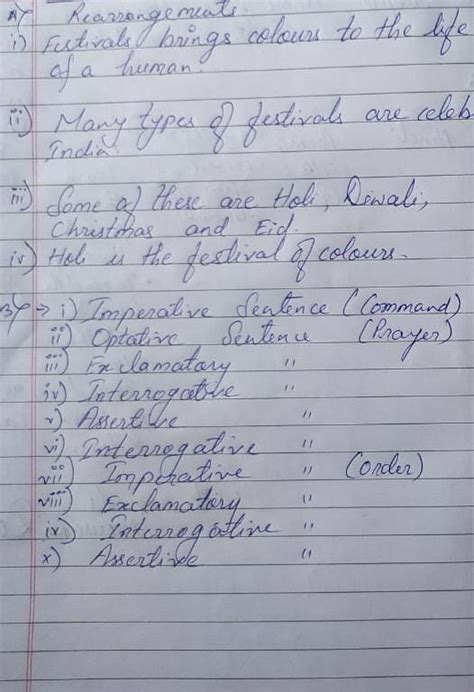 A) Rearrangements
i) Festivals brings colours to the life
of a human.
ii) Many types of festivals are celeb
India.
iii) Some of these are Holi, Diwali,
Christmas and Eid.
iv) Holi is the festival of colours.
B) → i) Imperative Sentence (Command)
ii) Optative Sentence (Prayer)
iii) Exclamatory "
iv) Interrogative "
v) Assertive "
vi) Interrogative "
vii) Imperative " (order)
viii) Exclamatory "
ix) Interrogative "
x) Assertive "